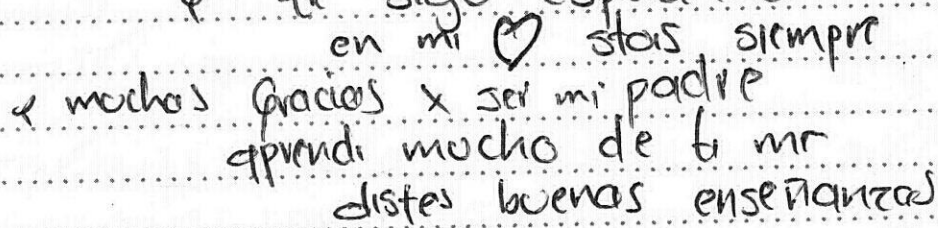 en mi ♡ stais siempre
y muchas Gracias x ser mi padre
aprendi mucho de ti mr
distes buenas enseñanzas